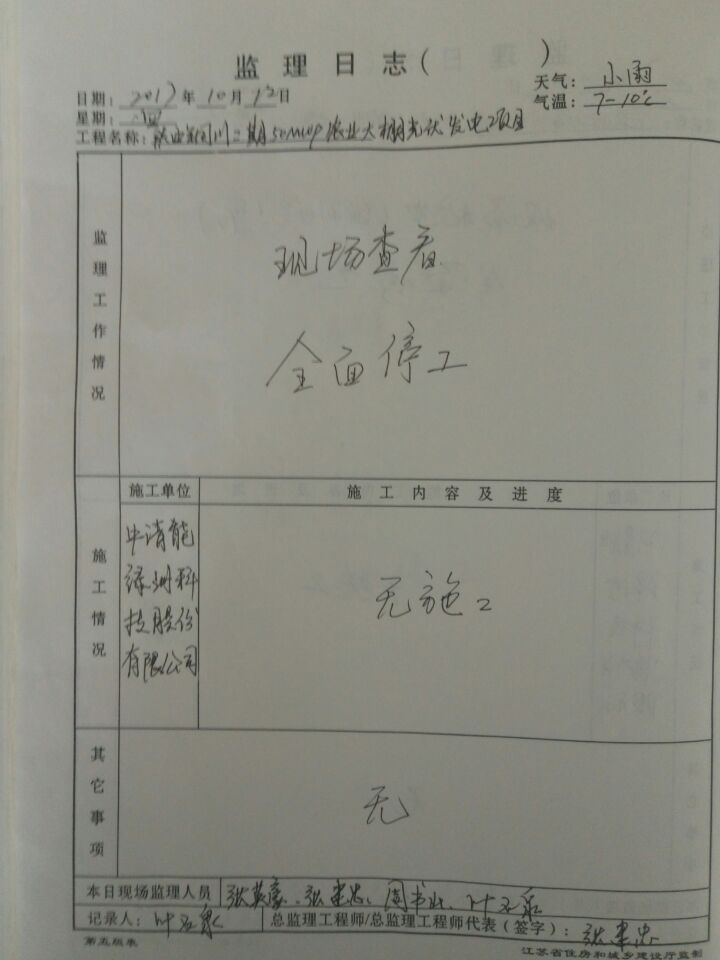 监理日志（ ）
天气：小雨
日期：2017年10月12日
气温：7-10℃
星期：四
工程名称：二期50MWp农业大棚光伏发电项目
监理工作情况
现场查看
全面停工
施工单位
施工内容及进度
施工情况
中清能
绿洲科
技股份
有限公司
无施工
其它事项
无
本日现场监理人员 张建忠、叶玉泉
记录人：叶玉泉 总监理工程师/总监理工程师代表（签字）：张建忠
第五版表
江苏省住房和城乡建设厅监制